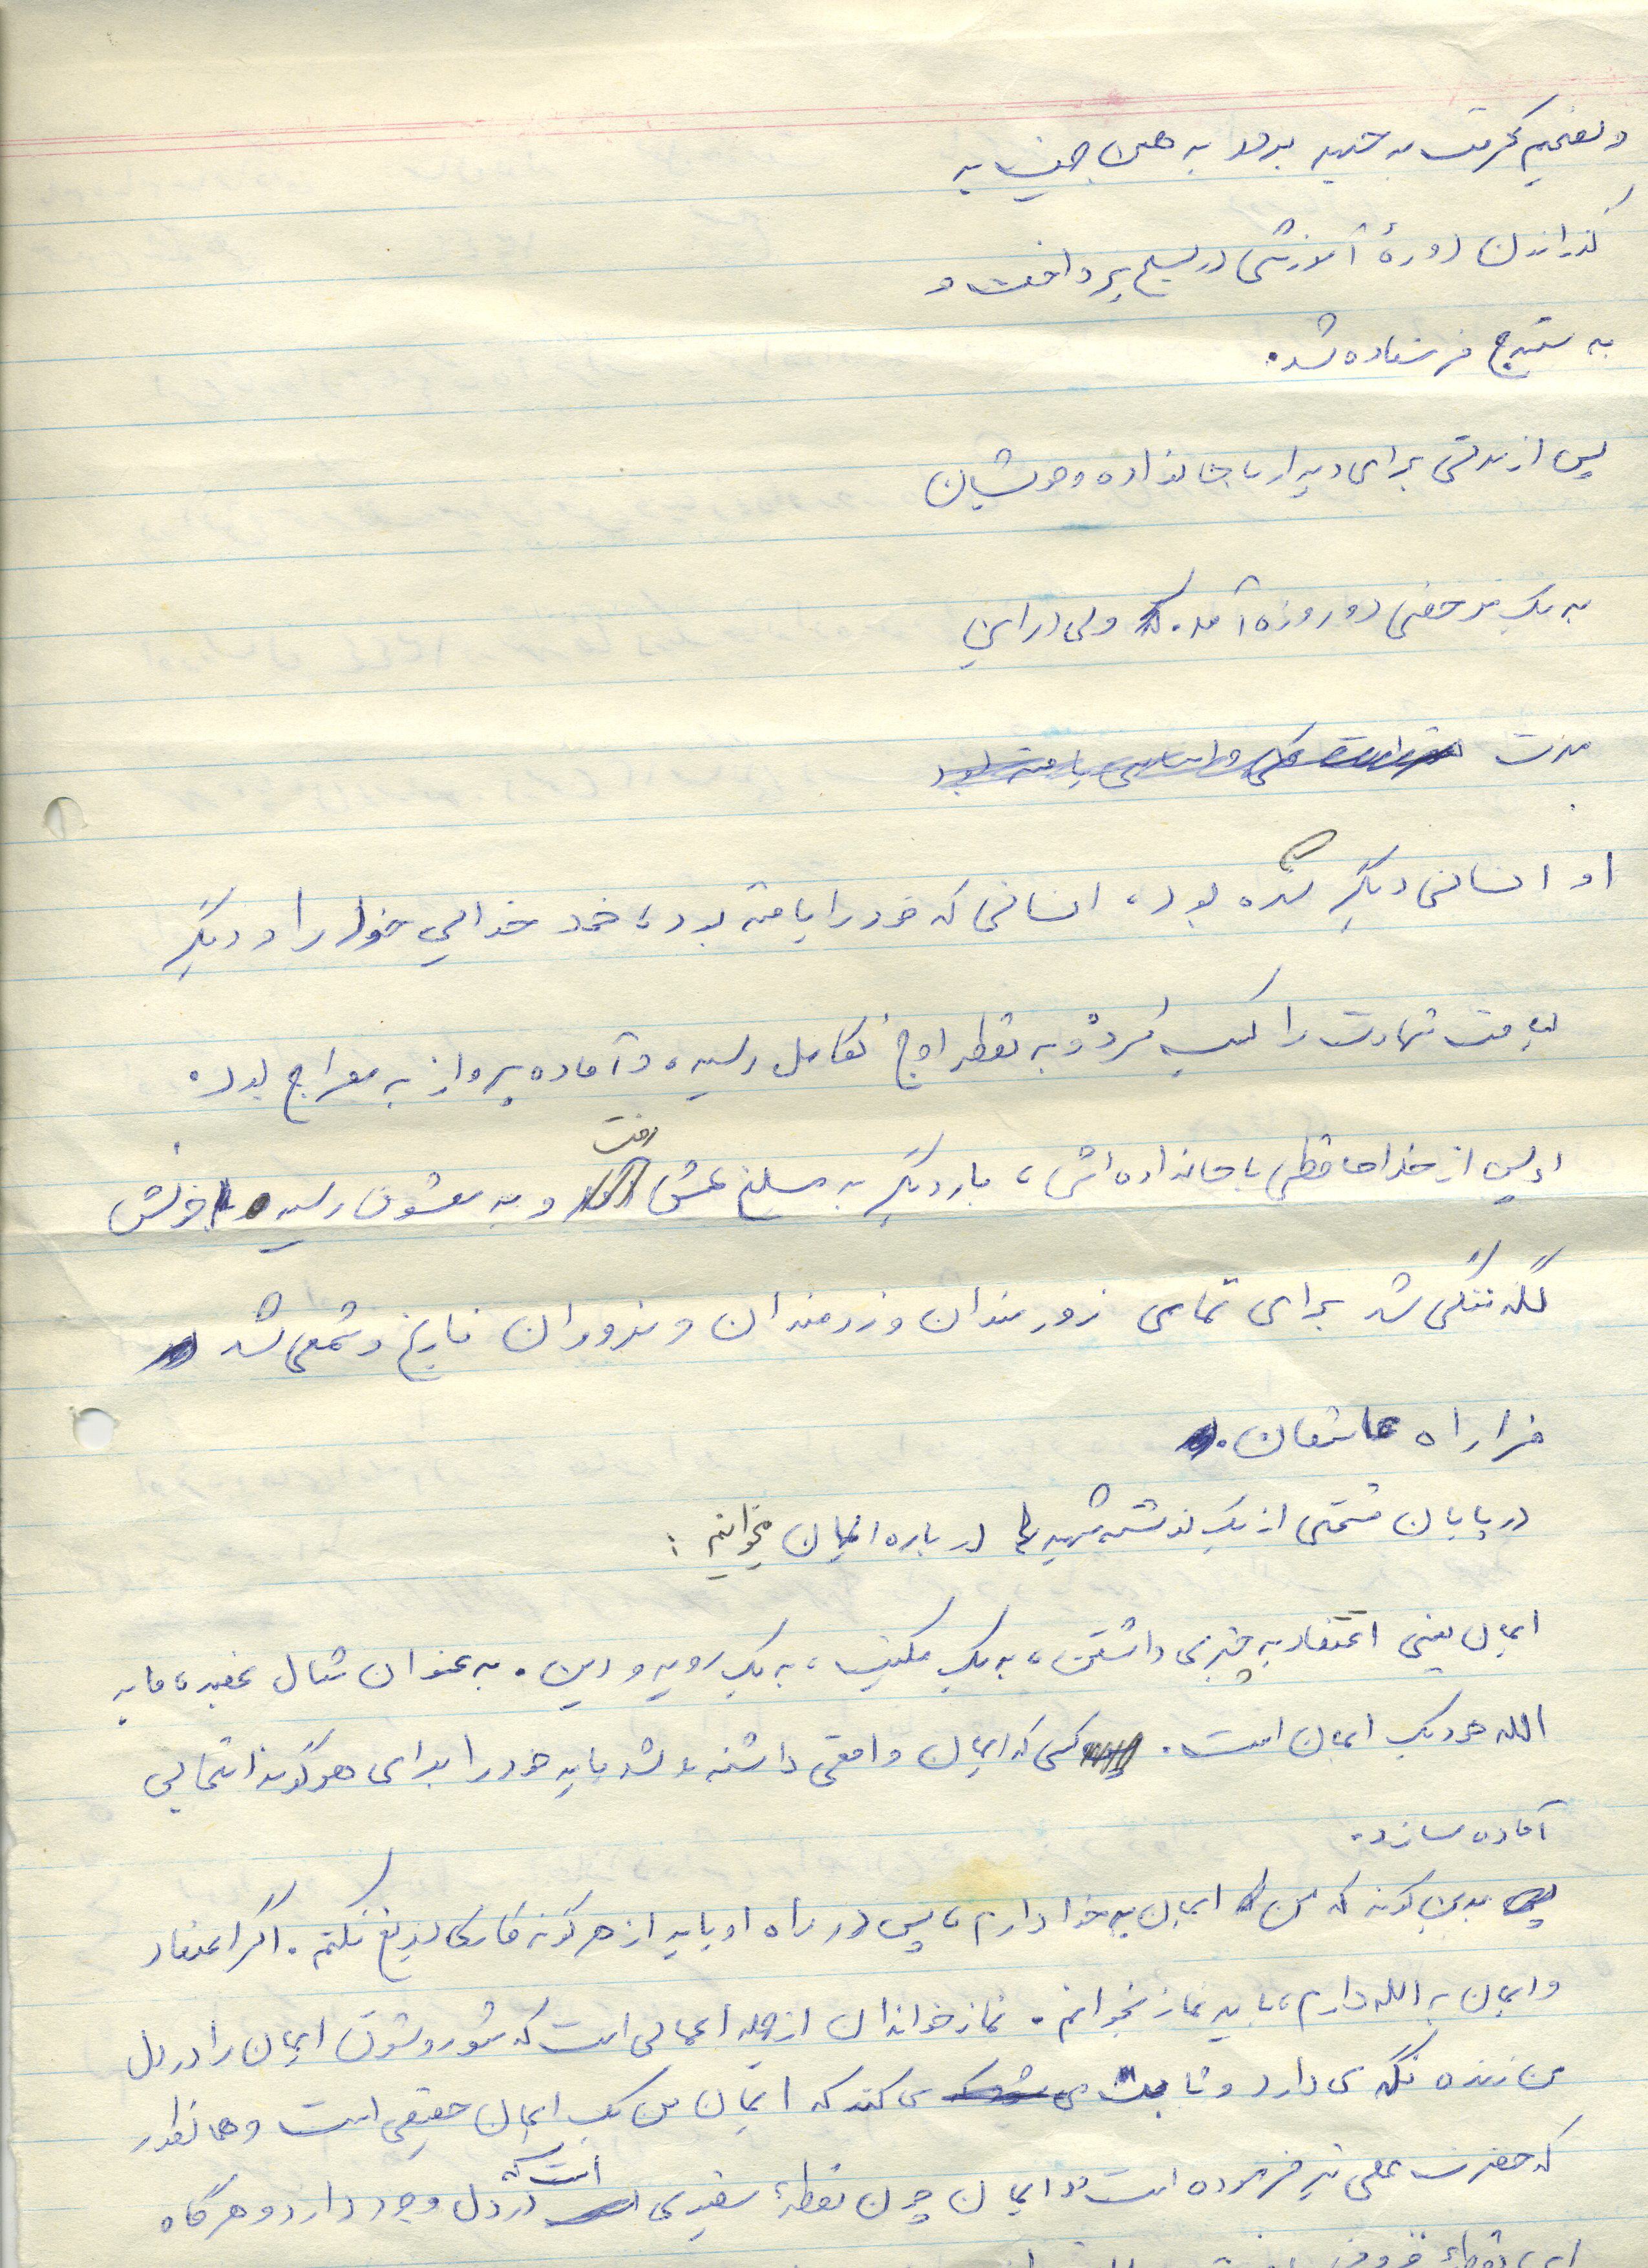 و تصمیم گرفت به جبهه برود به همین جهت به
گذراندن دورهٔ آموزشی در بسیج پرداخت و
به سنندج فرستاده شد.
پس از مدتی برای دیدار با خانواده و خویشان
به یک مرخصی دو روزه آمد. ولی در این
مدت
او انسانی دیگر شده بود، انسانی که خود را یافته بود، خود خدایی خود را و دیگر
لیاقت شهادت را کسب کرده و به نقطه اوج تکامل رسیده و آماده پرواز به معراج بود.
او پس از خداحافظی با خانواده‌اش، بار دیگر به مسلخ عشق رفت و به معشوق رسید و خونش
گله ننگی شد برای تمامی زورمندان و زرمندان و مزوران تاریخ و شمعی شد
فرا راه عاشقان.
در پایان قسمتی از یک نوشته شهید در باره ایمان میخوانیم :
ایمان یعنی اعتقاد به چیزی داشتن، به یک مکتب، به یک رویه و دین. به عنوان مثال عقیده ما به
الله خود یک ایمان است. کسی که ایمان واقعی داشته باشد باید خود را برای هر گونه امتحانی
آماده سازد.
بدین گونه که من ایمان به خدا دارم، پس در راه او باید از هر گونه فداکاری دریغ نکنم. اگر اعتقاد
و ایمان به الله دارم، باید نماز بخوانم. نماز خواندن از جمله اعمالی است که شور و شوق ایمان را در دل
من زنده نگه می دارد و ثابت می کند که ایمان من یک ایمان حقیقی است و همانطور
که حضرت علی نیز فرموده است «ایمان چون نقطهٔ سفیدی است که در دل وجود دارد و هر گاه
این نقطهٔ